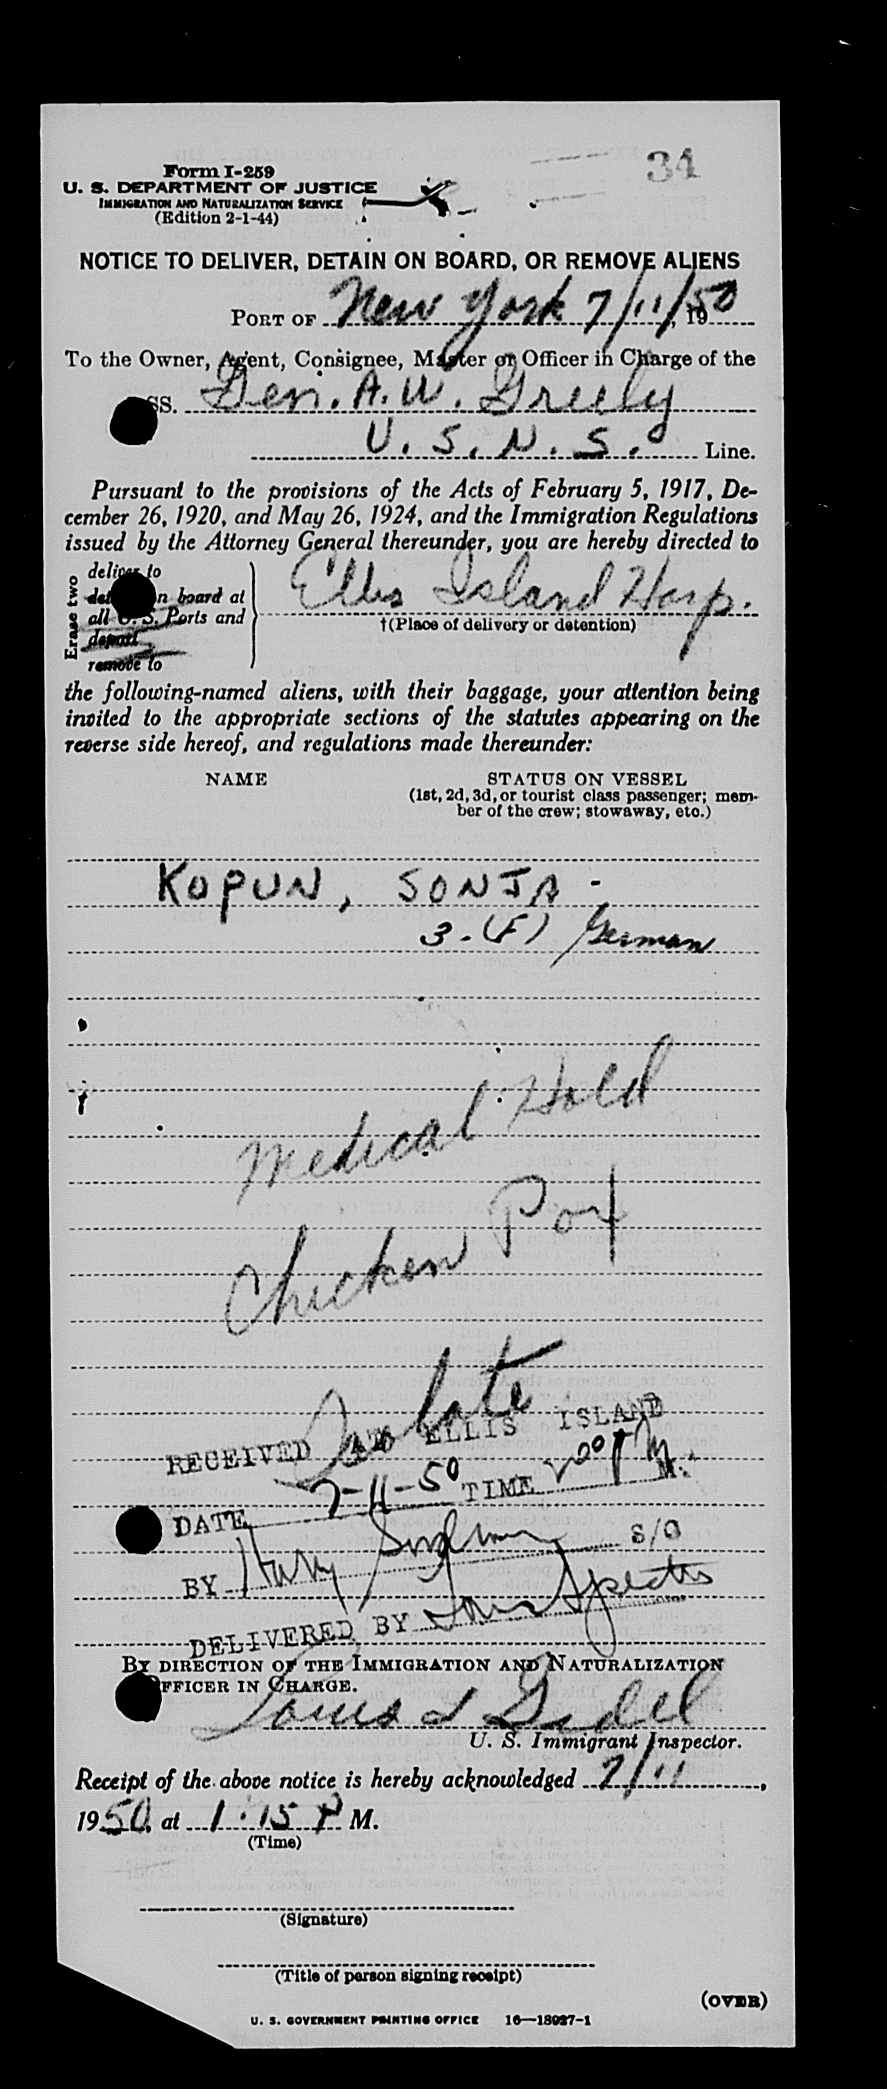 34
Form I-259
U. S. DEPARTMENT OF JUSTICE
IMMIGRATION AND NATURALIZATION SERVICE
(Edition 2-1-44)
NOTICE TO DELIVER, DETAIN ON BOARD, OR REMOVE ALIENS
PORT OF New York 7/11/50, 19
To the Owner, Agent, Consignee, Master or Officer in Charge of the
SS. Gen. A. W. Greely
U. S. N. S. Line.
Pursuant to the provisions of the Acts of February 5, 1917, De-
cember 26, 1920, and May 26, 1924, and the Immigration Regulations
issued by the Attorney General thereunder, you are hereby directed to
Erase two
deliver to
n board at
all U. S. Ports and
depart
remove to
Ellis Island Hosp.
†(Place of delivery or detention)
the following-named aliens, with their baggage, your attention being
invited to the appropriate sections of the statutes appearing on the
reverse side hereof, and regulations made thereunder:
NAME STATUS ON VESSEL
(1st, 2d, 3d, or tourist class passenger; mem-
ber of the crew; stowaway, etc.)
KOPUN, SONJA -
3 - (F) German
Medical Hold
Chicken Pox
Isolate
RECEIVED AT ELLIS ISLAND
DATE 7-11-50 TIME 200 P M.
BY Harry S/O
DELIVERED BY Spector
BY DIRECTION OF THE IMMIGRATION AND NATURALIZATION
OFFICER IN CHARGE.
Louis
U. S. Immigrant Inspector.
Receipt of the above notice is hereby acknowledged 7/11,
1950, at 1:15 P M.
(Time)
(Signature)
(Title of person signing receipt)
(OVER)
U. S. GOVERNMENT PRINTING OFFICE 16—18027-1